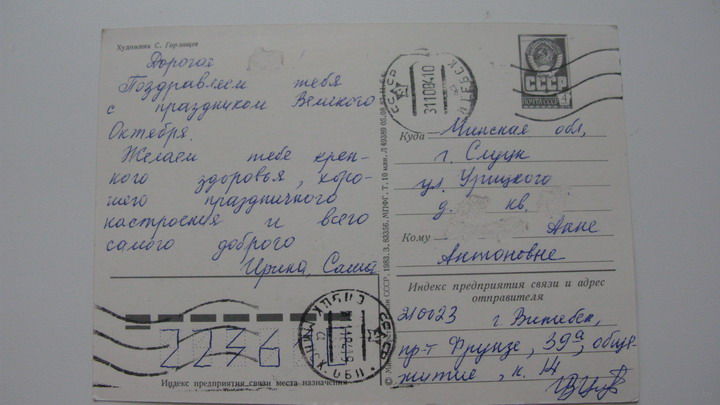 Художник С. Горлищев
Дорогая
Поздравляем тебя
с праздником Великого
Октября.
Желаем тебе креп-
кого здоровья, хоро-
шего праздничного
настроения и всего
самого доброго
Ирина, Саша
СССР
ПОЧТА СССР
Куда Минская обл,
г. Слуцк
ул. Урицкого
д. кв.
Кому Анне
Антоновне
Индекс предприятия связи и адрес
отправителя
210023 г. Витебск,
пр-т Фрунзе, 39а, обще-
житие, к. 14
Индекс предприятия связи места назначения